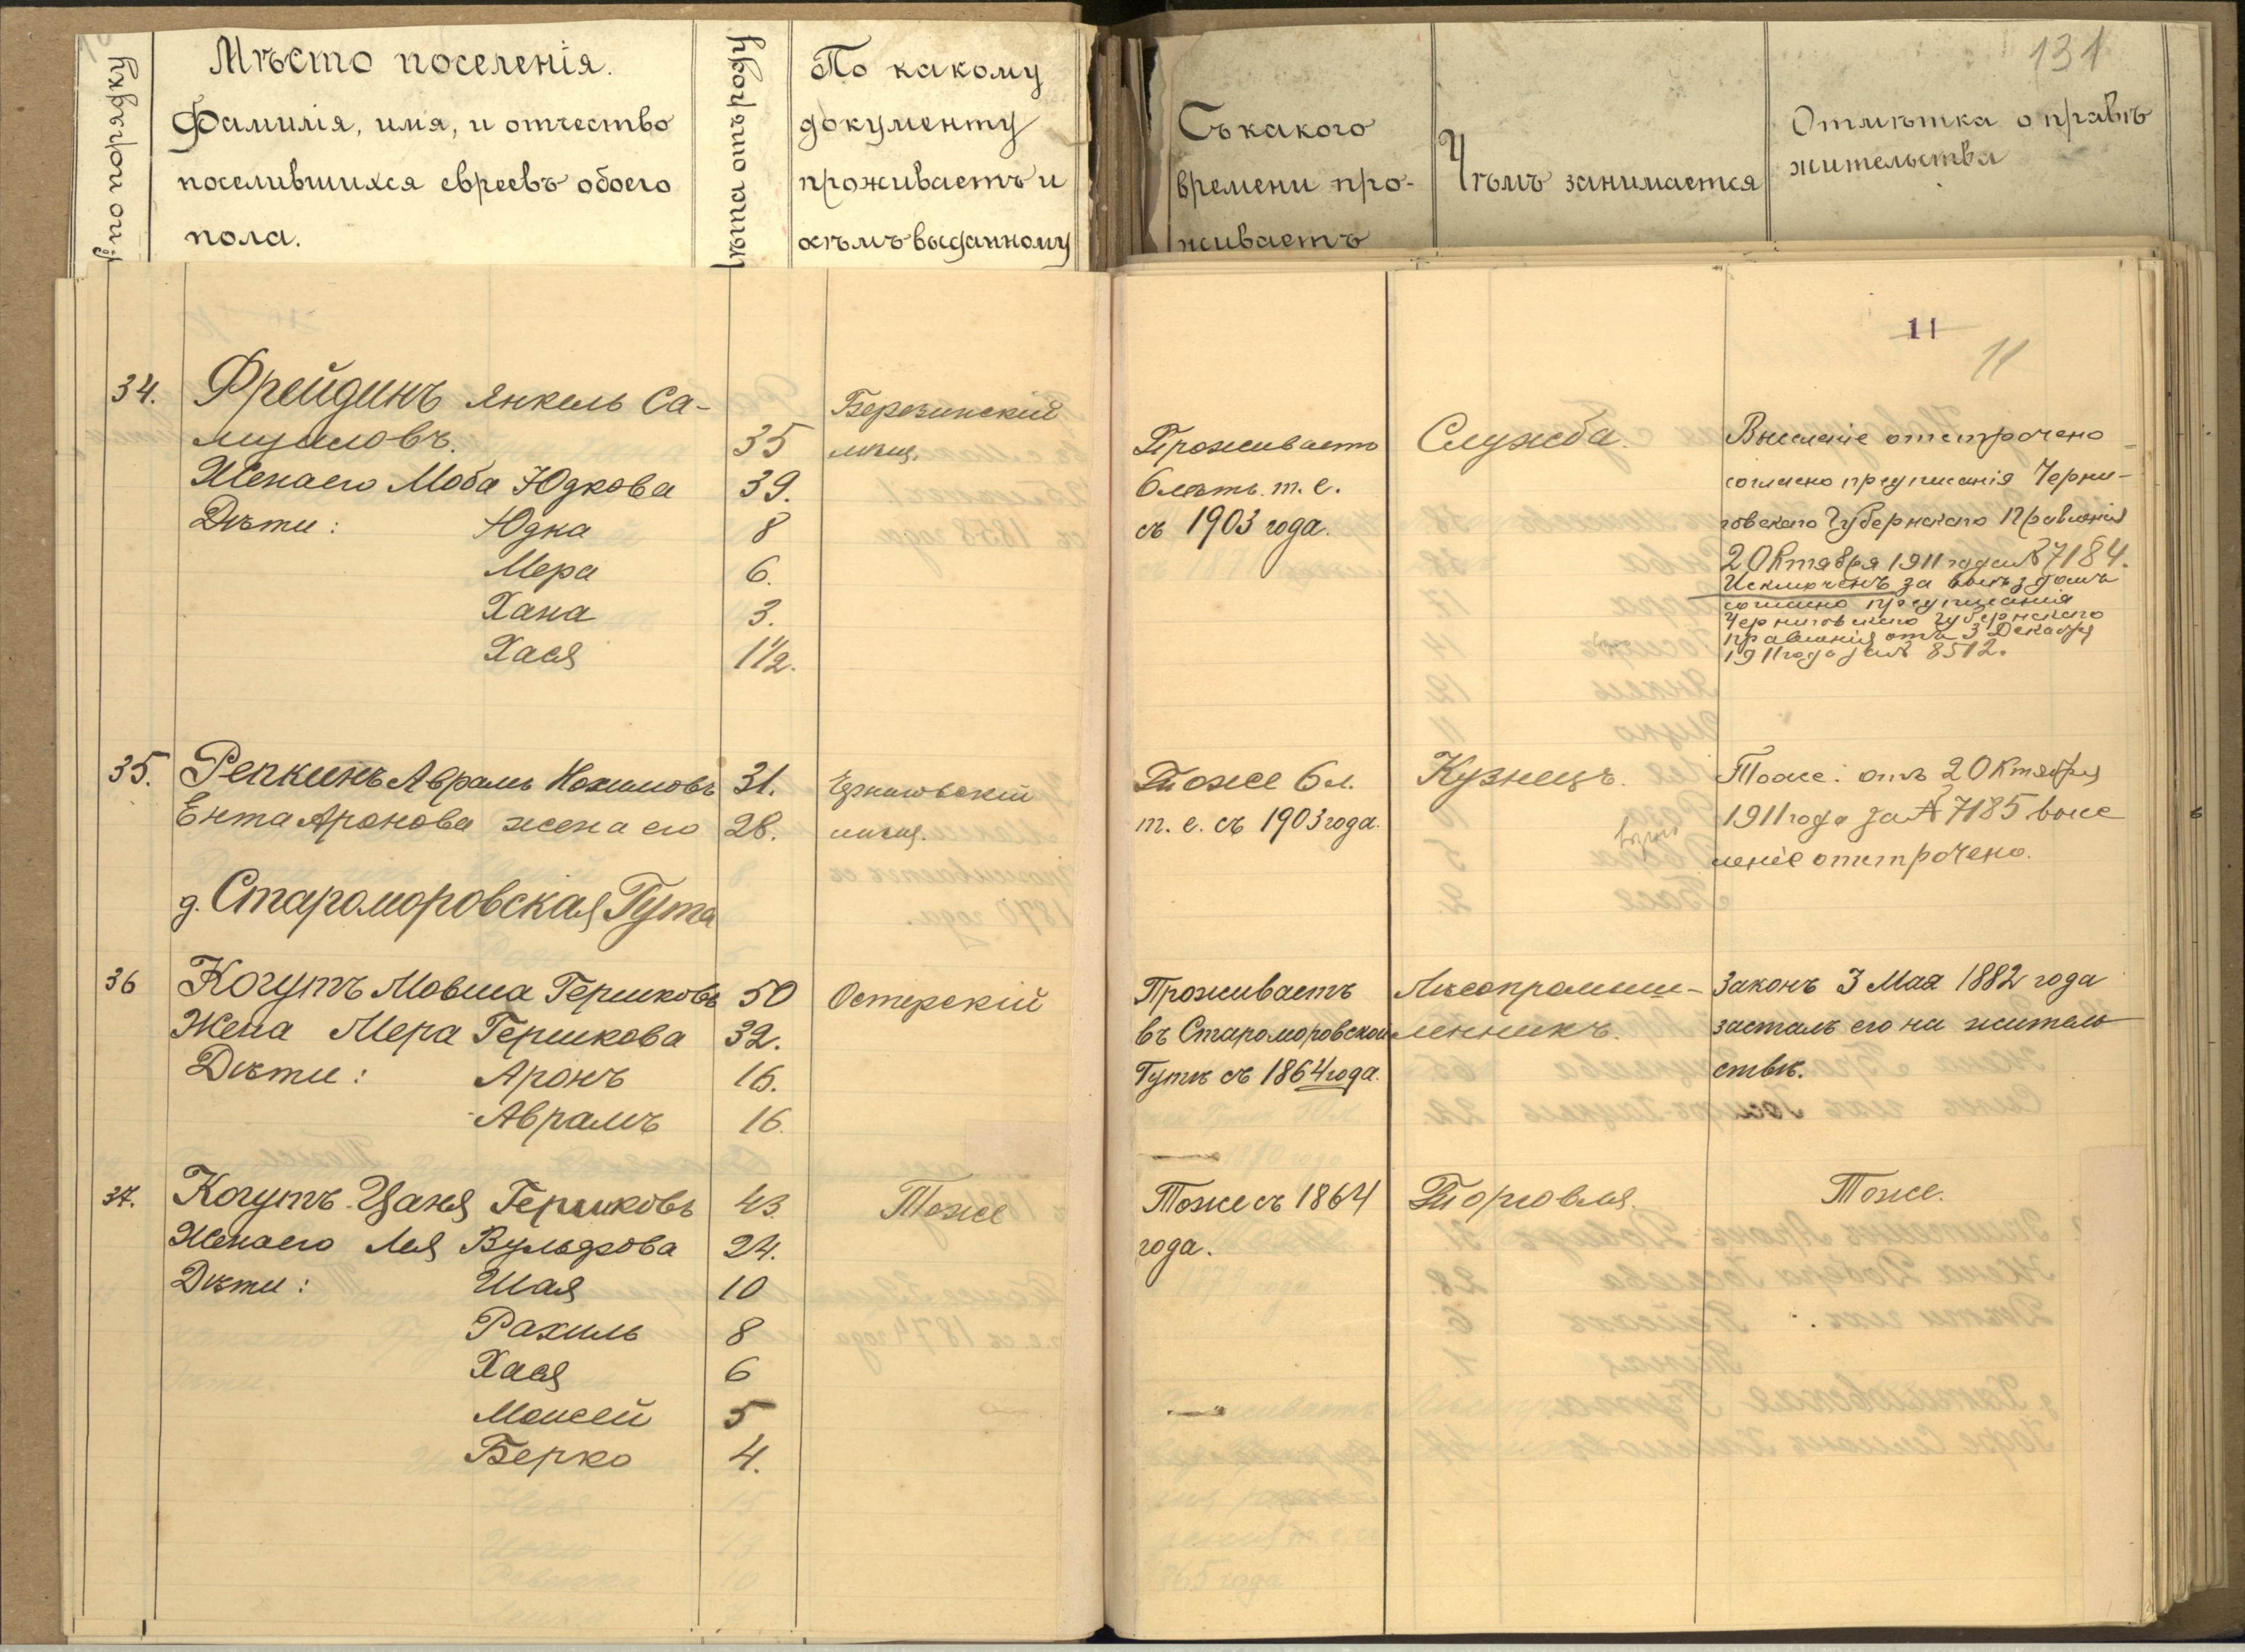 131
№ по порядку
Мѣсто поселенія.
Фамилія, имя, и отчество
поселившихся евреевъ обоего
пола.
лѣта отъ роду
По какому
документу
проживаетъ и
кѣмъ выданному
Съ какого
времени про-
живаетъ
Чѣмъ занимается
Отмѣтка о правѣ
жительства
11
11
34. Фрейдинъ Янкель Са-
муиловъ. 35
Жена его Моба Юдкова 39.
Дѣти: Юдка 8
Мера 6.
Хана 3.
Хася 1½.
Березинскій
мѣщ.
Проживаетъ
6 лѣтъ. т. е.
съ 1903 года.
Служба.
Выселеніе отстрочено
согласно предписанія Черни-
говскаго Губернскаго Правленія
2 Октября 1911 года № 7184.
Исключенъ за выѣздомъ
согласно предписанія
Черниговскаго Губернскаго
правленія отъ 3 Декабря
1911 года за № 8512.
35. Репкинъ Аврамъ Нохимовъ 31.
Ента Аронова жена его 28.
Черниговскій
мѣщ.
Тоже 6 л.
т. е. съ 1903 года.
Кузнецъ.
Тоже: отъ 2 Октября
1911 года за № 7185 высе
леніе отстрочено.
д. Староморовская Гута
36 Когутъ Мовша Гершковъ 50
Жена Мера Гершкова 32.
Дѣти: Аронъ 16.
Аврамъ 16.
Остерскій
Проживаетъ
въ Староморовской
Гутѣ съ 1864 года.
Лѣсопромыш-
ленникъ.
Законъ 3 Мая 1882 года
засталъ его на житель
ствѣ.
37. Когутъ Цаня Гершковъ 43
Жена его Лея Вульфова 24.
Дѣти: Шая 10
Рахиль 8
Хася 6
Моисей 5
Берко 4.
Тоже
Тоже съ 1864
года.
Торговля.
Тоже.